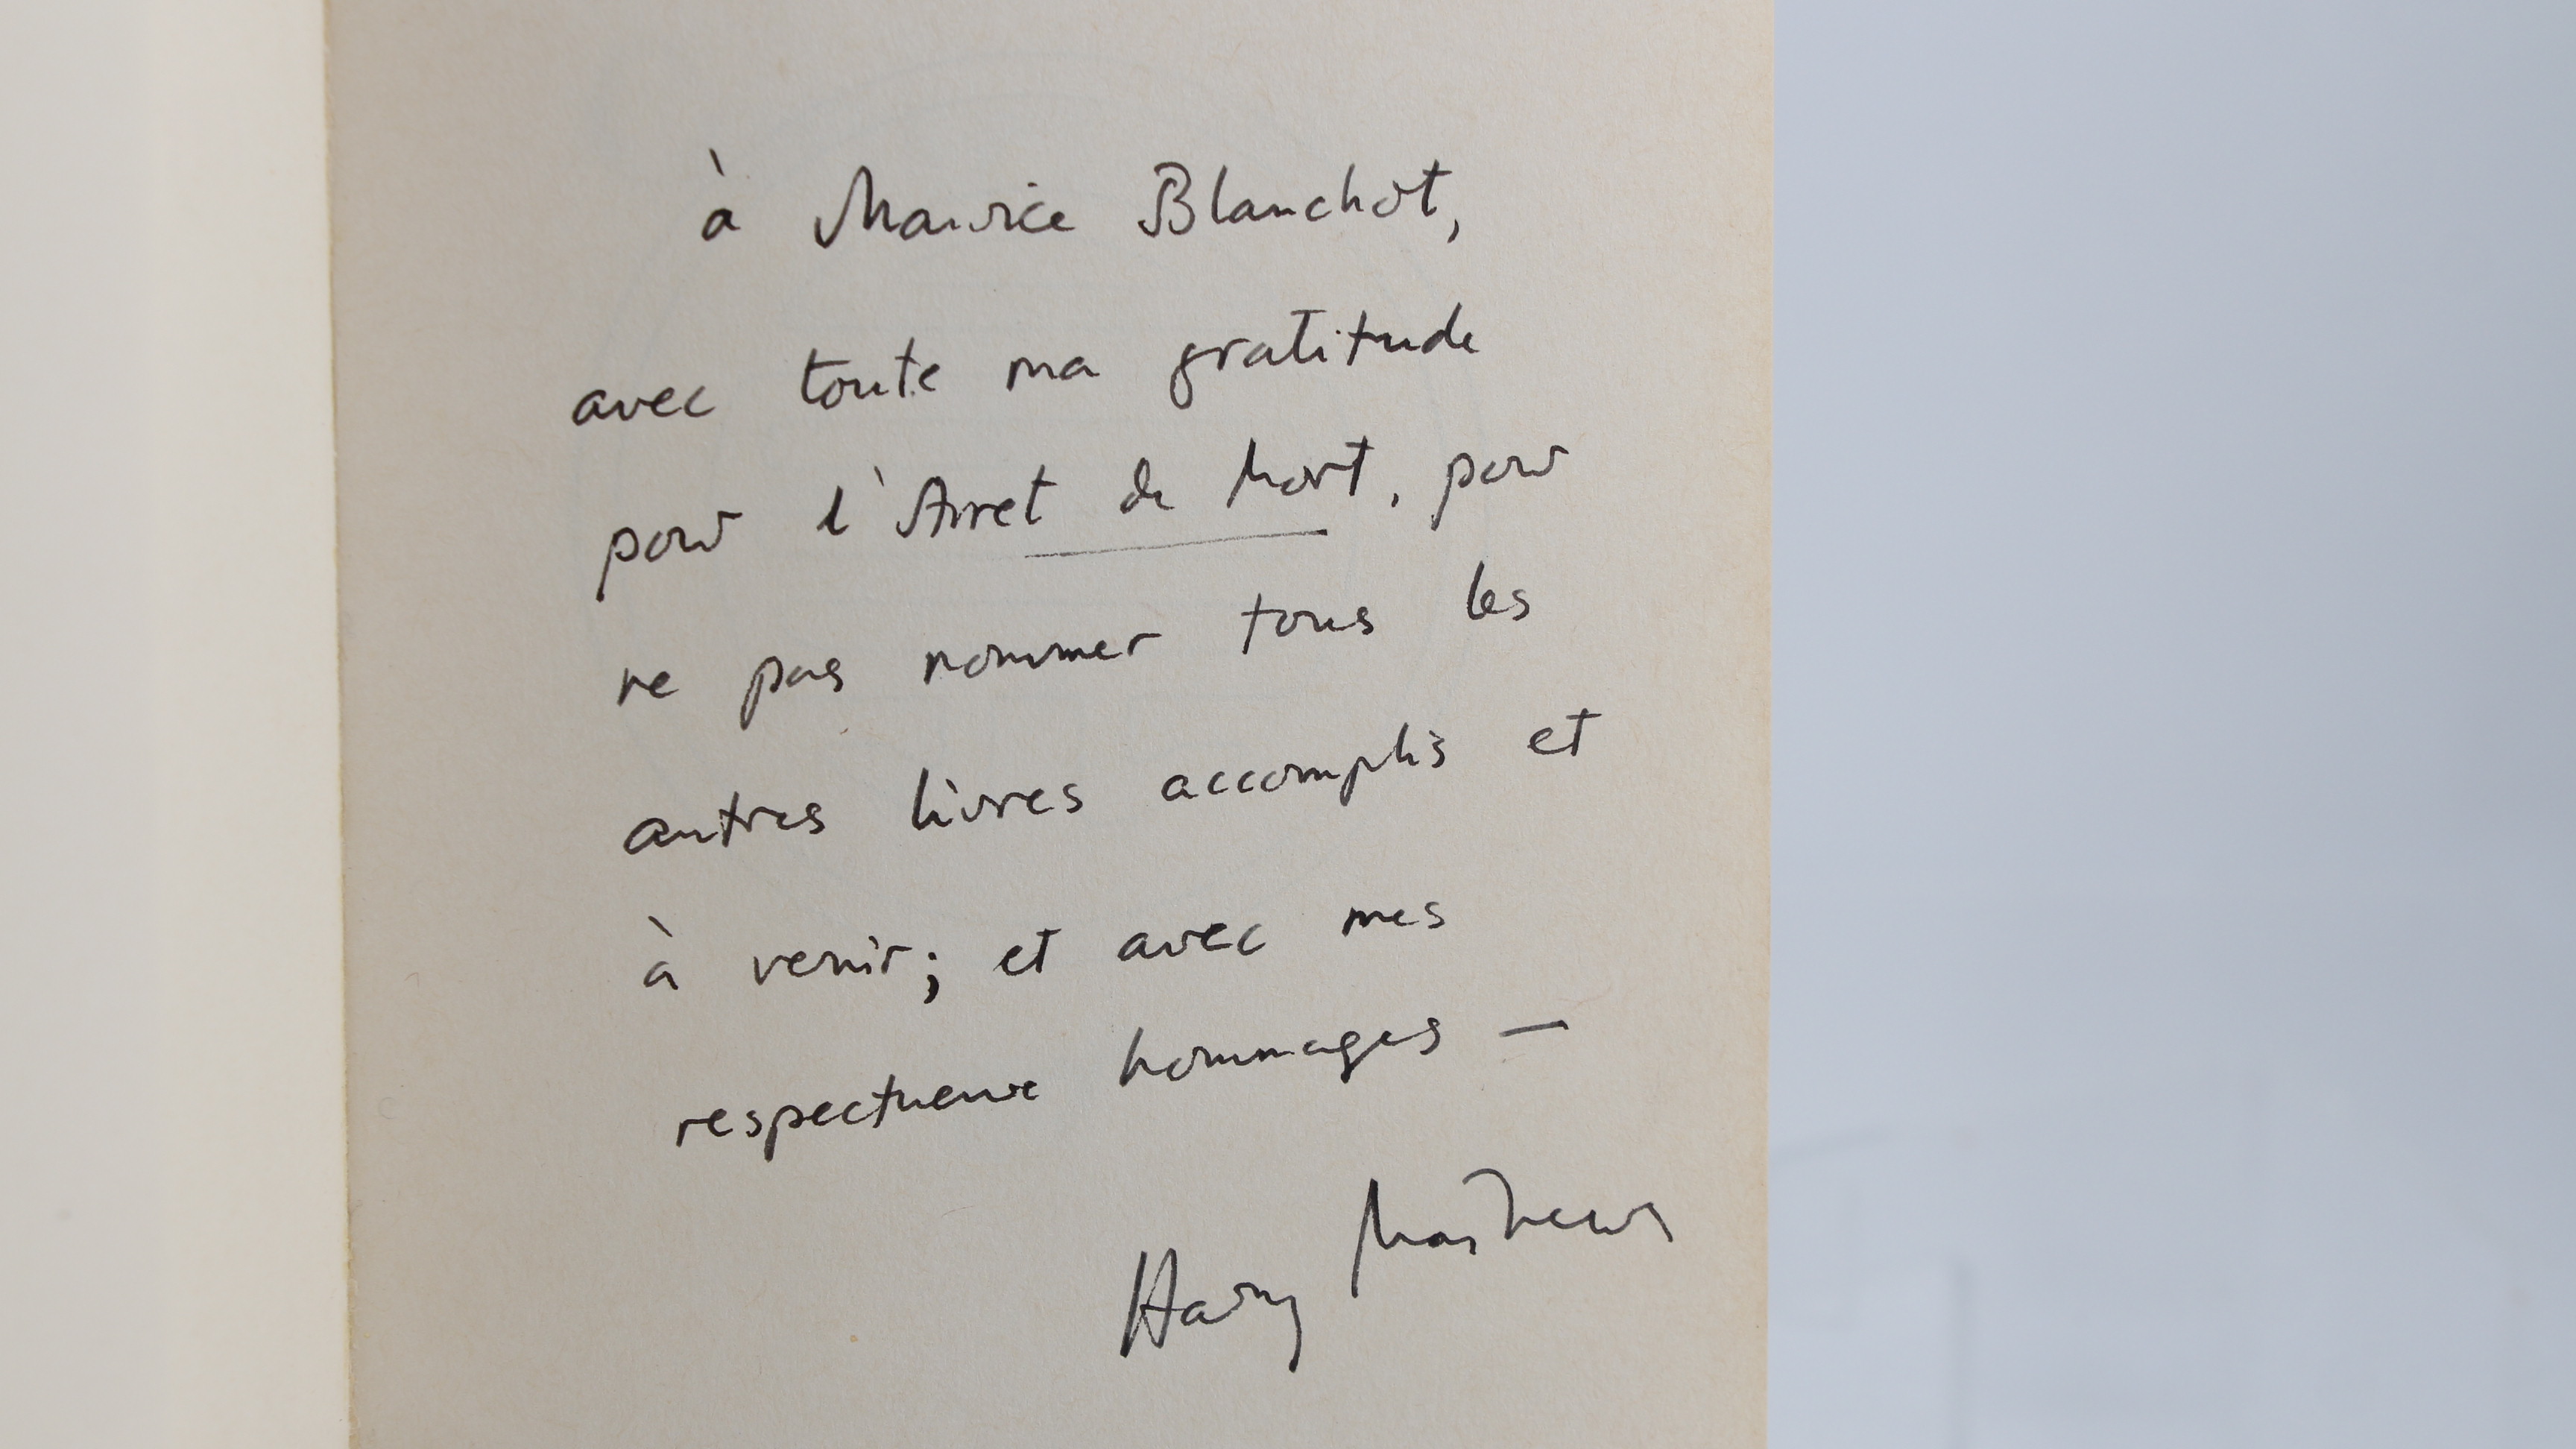 à Maurice Blanchot,
avec toute ma gratitude
pour l'Arret de Mort, pour
ne pas nommer tous les
autres livres accomplis et
à venir; et avec mes
respectueux hommages —
Harry Mathews